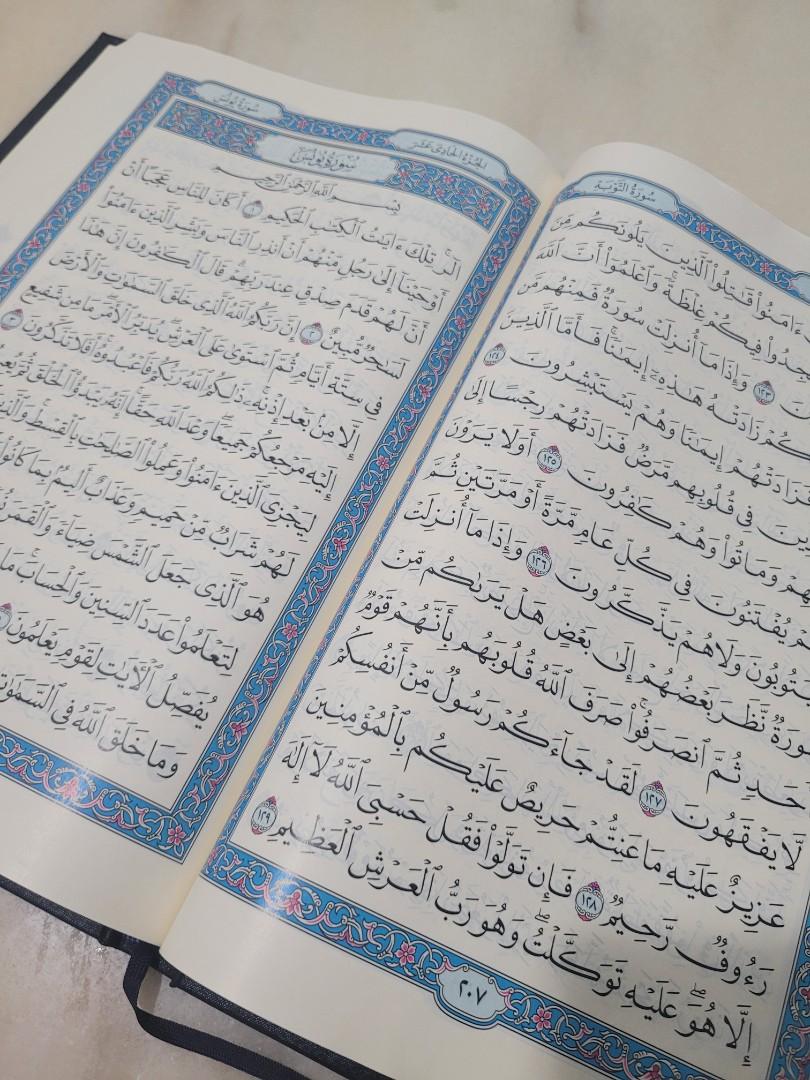 سُورَةُ التَّوْبَةِ
ءَامَنُوا۟ قَـٰتِلُوا۟ ٱلَّذِينَ يَلُونَكُم مِّنَ
جِدُوا۟ فِيكُمْ غِلْظَةً وَٱعْلَمُوٓا۟ أَنَّ ٱللَّهَ
نَ ١٢٣ وَإِذَا مَآ أُنزِلَتْ سُورَةٌ فَمِنْهُم مَّن
كُمْ زَادَتْهُ هَـٰذِهِۦٓ إِيمَـٰنًا فَأَمَّا ٱلَّذِينَ
زَادَتْهُمْ إِيمَـٰنًا وَهُمْ يَسْتَبْشِرُونَ ١٢٤
ينَ فِى قُلُوبِهِم مَّرَضٌ فَزَادَتْهُمْ رِجْسًا إِلَىٰ
هِمْ وَمَاتُوا۟ وَهُمْ كَـٰفِرُونَ ١٢٥ أَوَلَا يَرَوْنَ
مْ يُفْتَنُونَ فِى كُلِّ عَامٍ مَّرَّةً أَوْ مَرَّتَيْنِ ثُمَّ
تُوبُونَ وَلَا هُمْ يَذَّكَّرُونَ ١٢٦ وَإِذَا مَآ أُنزِلَتْ
ورَةٌ نَّظَرَ بَعْضُهُمْ إِلَىٰ بَعْضٍ هَلْ يَرَىٰكُم مِّنْ
حَدٍ ثُمَّ ٱنصَرَفُوا۟ صَرَفَ ٱللَّهُ قُلُوبَهُم بِأَنَّهُمْ قَوْمٌ
لَّا يَفْقَهُونَ ١٢٧ لَقَدْ جَآءَكُمْ رَسُولٌ مِّنْ أَنفُسِكُمْ
عَزِيزٌ عَلَيْهِ مَا عَنِتُّمْ حَرِيصٌ عَلَيْكُم بِٱلْمُؤْمِنِينَ
رَءُوفٌ رَّحِيمٌ ١٢٨ فَإِن تَوَلَّوْا۟ فَقُلْ حَسْبِىَ ٱللَّهُ لَآ إِلَـٰهَ
إِلَّا هُوَ عَلَيْهِ تَوَكَّلْتُ وَهُوَ رَبُّ ٱلْعَرْشِ ٱلْعَظِيمِ ١٢٩
٢٠٧
الجُزْءُ الحَادِي عَشَرَ
سُورَةُ يُونُسَ
سُورَةُ يُونُسَ
بِسْمِ ٱللَّهِ ٱلرَّحْمَـٰنِ ٱلرَّحِيمِ
الٓر تِلْكَ ءَايَـٰتُ ٱلْكِتَـٰبِ ٱلْحَكِيمِ ١ أَكَانَ لِلنَّاسِ عَجَبًا أَنْ
أَوْحَيْنَآ إِلَىٰ رَجُلٍ مِّنْهُمْ أَنْ أَنذِرِ ٱلنَّاسَ وَبَشِّرِ ٱلَّذِينَ ءَامَنُوٓا۟
أَنَّ لَهُمْ قَدَمَ صِدْقٍ عِندَ رَبِّهِمْ قَالَ ٱلْكَـٰفِرُونَ إِنَّ هَـٰذَا
لَسَـٰحِرٌ مُّبِينٌ ٢ إِنَّ رَبَّكُمُ ٱللَّهُ ٱلَّذِى خَلَقَ ٱلسَّمَـٰوَٰتِ وَٱلْأَرْضَ
فِى سِتَّةِ أَيَّامٍ ثُمَّ ٱسْتَوَىٰ عَلَى ٱلْعَرْشِ يُدَبِّرُ ٱلْأَمْرَ مَا مِن شَفِيعٍ
إِلَّا مِنۢ بَعْدِ إِذْنِهِۦ ذَٰلِكُمُ ٱللَّهُ رَبُّكُمْ فَٱعْبُدُوهُ أَفَلَا تَذَكَّرُونَ ٣
إِلَيْهِ مَرْجِعُكُمْ جَمِيعًا وَعْدَ ٱللَّهِ حَقًّا إِنَّهُۥ يَبْدَؤُا۟ ٱلْخَلْقَ ثُمَّ يُعِ
لِيَجْزِىَ ٱلَّذِينَ ءَامَنُوا۟ وَعَمِلُوا۟ ٱلصَّـٰلِحَـٰتِ بِٱلْقِسْطِ وَٱلَّذِ
لَهُمْ شَرَابٌ مِّنْ حَمِيمٍ وَعَذَابٌ أَلِيمٌۢ بِمَا كَانُوا۟
هُوَ ٱلَّذِى جَعَلَ ٱلشَّمْسَ ضِيَآءً وَٱلْقَمَرَ نُ
لِتَعْلَمُوا۟ عَدَدَ ٱلسِّنِينَ وَٱلْحِسَابَ مَا
يُفَصِّلُ ٱلْـَٔايَـٰتِ لِقَوْمٍ يَعْلَمُونَ
وَمَا خَلَقَ ٱللَّهُ فِى ٱلسَّمَـٰوَٰ